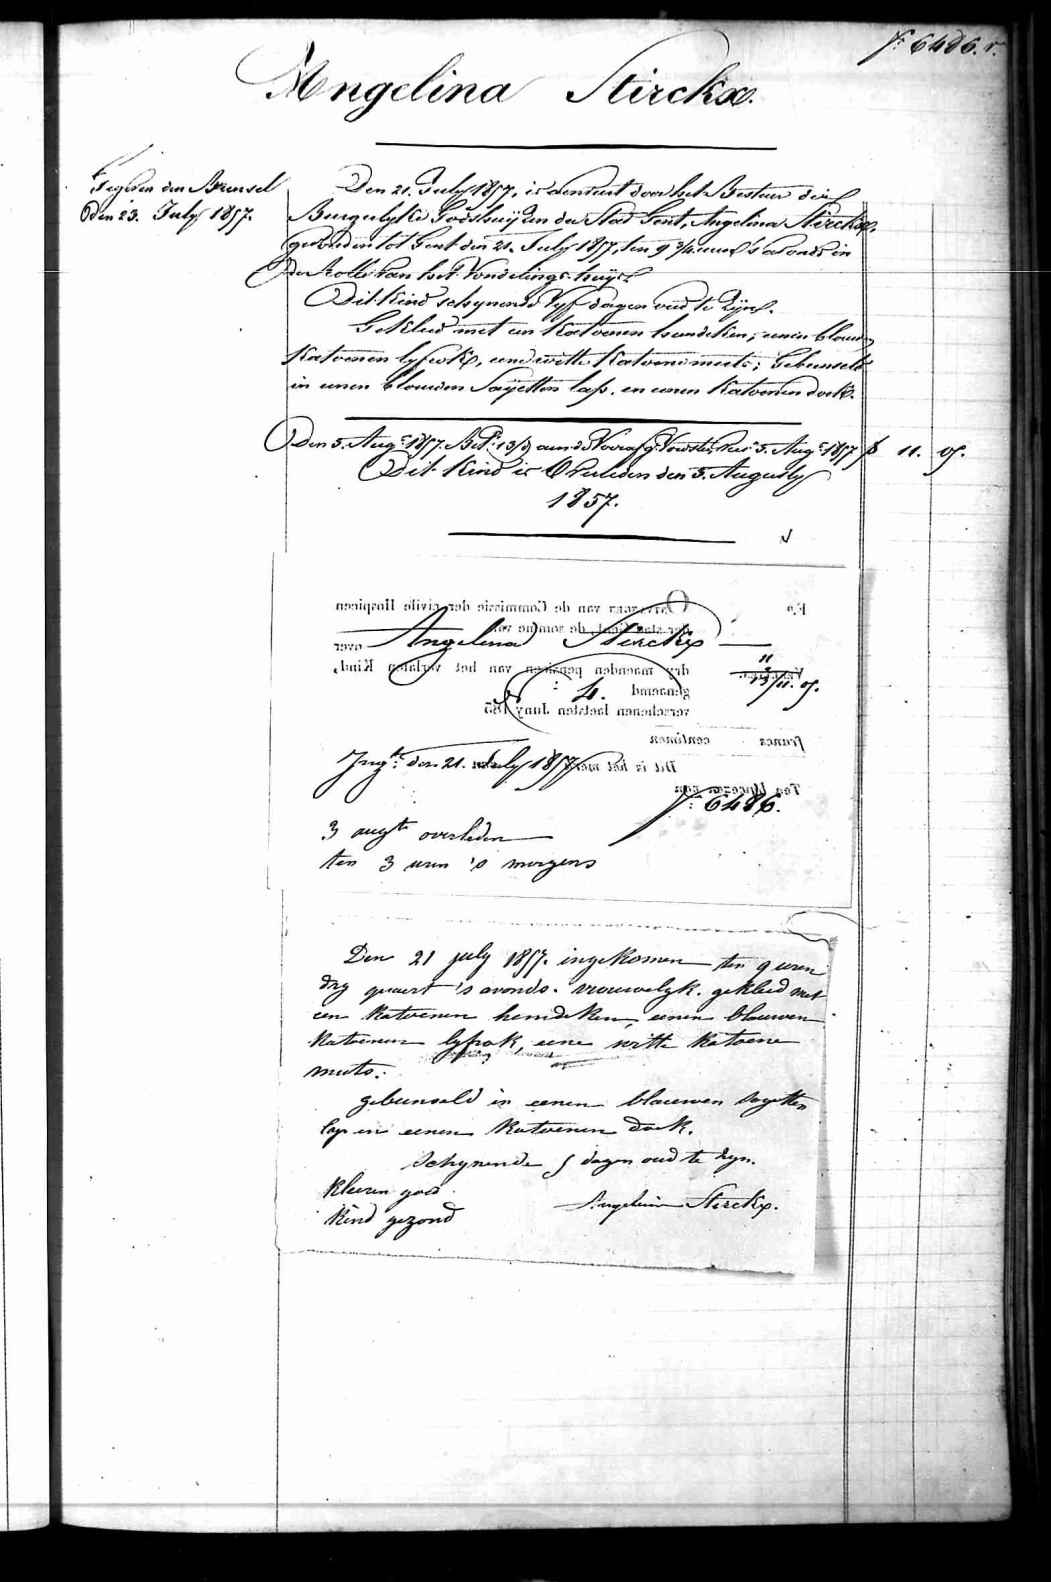 f: 6486. v.
Angelina Stirckx.
den 23. July 1857.
Den 21. July 1857, is aenveert door het Bestuer der
Burgerlyke Godshuyzen der Stad Gent, Angelina Stirckx,
gevonden tot Gent den 21. July 1857, ten 9 3/4 uren 's avonds in
de Rolle van het Vondelings-huys.
Dit kind schynende vyf dagen oud te zyn.
Gekleed met een katoenen hemdeken, eenen blauwen
katoenen lyfrok, eene witte katoene muts; Gebunseld
in eenen blauwen Sayetten lap, en eenen katoenen doek.
Den 5. Augt. 1857 13/ aen 5. Augt. 1857 f 11. 05.
Dit kind is Overleden den 3. Augusty
1857.
Ontvangen van de Commissie der civile Hospicen
der stad Gent, de somme van
Angelina Stirckx
over
dry maenden pensioen van het verlaten Kind,
genaemd
4.
verschenen laetsten Juny 185
11
13/11. 05.
francs centimen
Dit is het merk
Ingt. den 21. July 1857
f: 6486.
3 augt overleden
ten 3 uren 's morgens
Den 21 july 1857. ingekomen ten 9 uren
dry quaert 's avonds. vrouwelyk. gekleed met
een katoenen hemdeken, eenen blauwen
katoenen lyfrok, eene witte katoene
muts.
gebunseld in eenen blauwen sayetten
lap en eenen katoenen doek.
schynende 5 dagen oud te zyn.
kleeren goed
Angelina Stirckx.
kind gezond